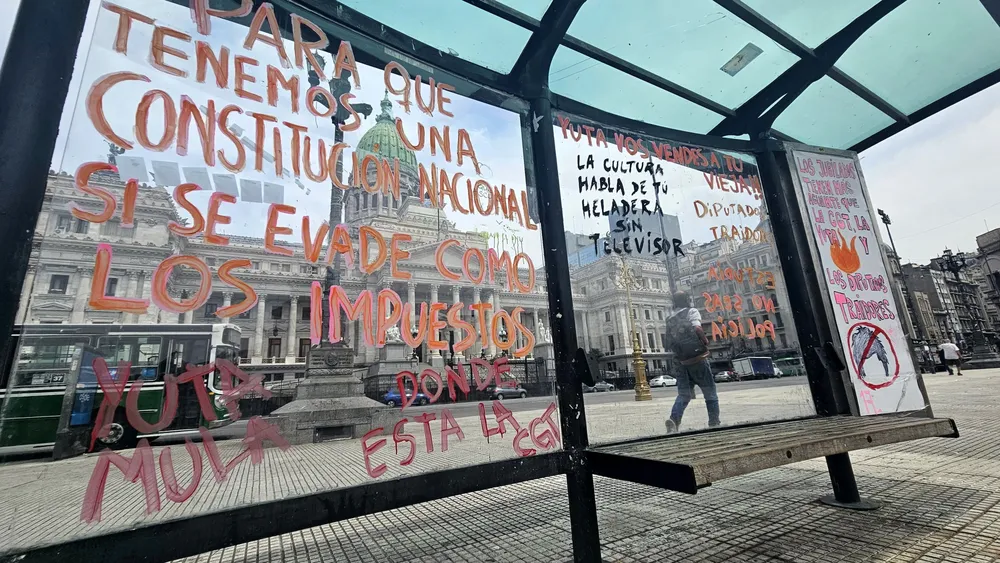 PARA QUE
TENEMOS UNA
CONSTITUCIÓN NACIONAL
SI SE EVADE COMO
LOS IMPUESTOS
YUTA
MULA
DONDE
ESTA LA
CGT
YUTA VOS VENDES A TU
VIEJA
LA CULTURA
HABLA DE TÚ
HELADERA
SIN
TELEVISOR
DIPUTADO
TRAIDOR
NO SEAS
POLICIA
LOS JUBILADOS
TIENEN MAS
AGUANTE QUE
LA CGT LA
Y
LOS DIPUTADOS
TRAIDORES